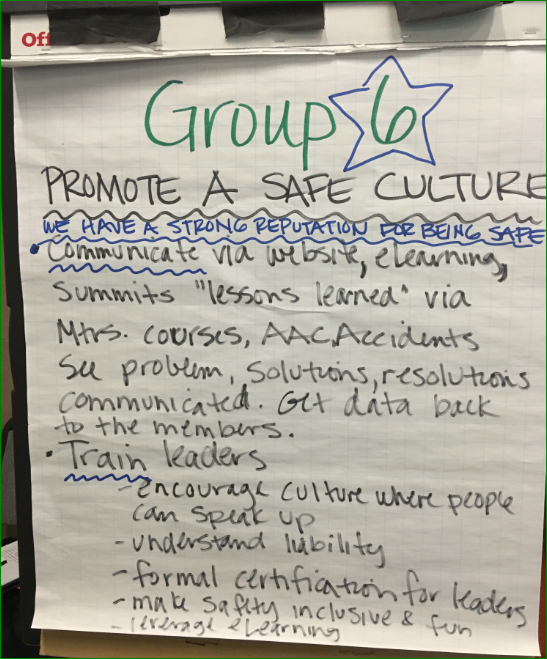 Off
Group 6
PROMOTE A SAFE CULTURE
WE HAVE A STRONG REPUTATION FOR BEING SAFE
• Communicate via website, eLearning,
Summits "lessons learned" via
Mtrs. courses, AAC, Accidents
See problem, solutions, resolutions
communicated. Get data back
to the members.
• Train leaders
- encourage culture where people
can speak up
- understand liability
- formal certification for leaders
- make safety inclusive & fun
- leverage eLearning